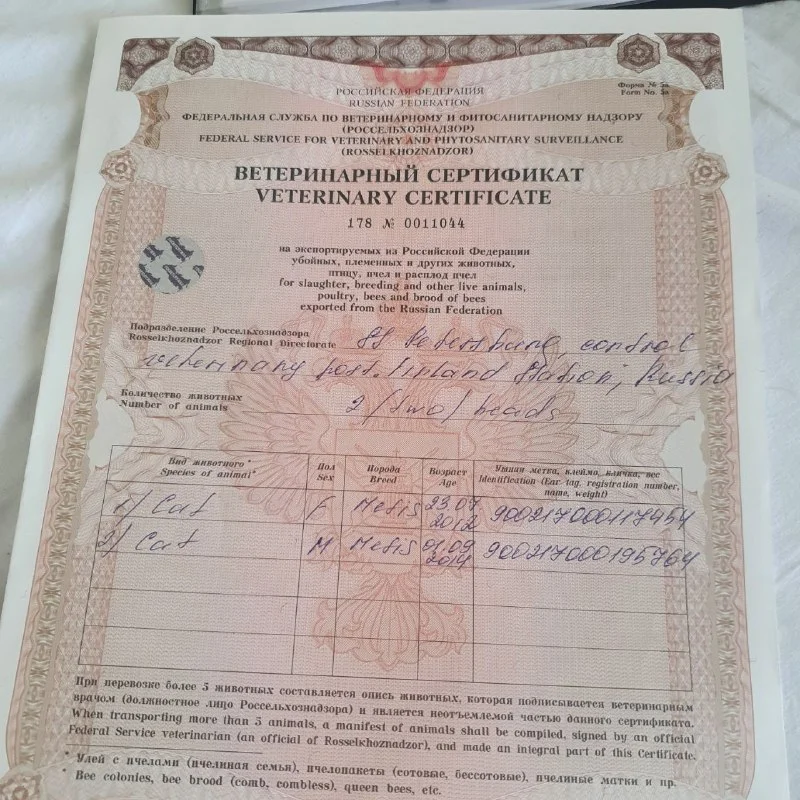 РОССИЙСКАЯ ФЕДЕРАЦИЯ
RUSSIAN FEDERATION
Форма № 5a
Form No. 5a
ФЕДЕРАЛЬНАЯ СЛУЖБА ПО ВЕТЕРИНАРНОМУ И ФИТОСАНИТАРНОМУ НАДЗОРУ
(РОССЕЛЬХОЗНАДЗОР)
FEDERAL SERVICE FOR VETERINARY AND PHYTOSANITARY SURVEILLANCE
(ROSSELKHOZNADZOR)
ВЕТЕРИНАРНЫЙ СЕРТИФИКАТ
VETERINARY CERTIFICATE
178 № 0011044
на экспортируемых из Российской Федерации
убойных, племенных и других животных,
птицу, пчел и расплод пчел
for slaughter, breeding and other live animals,
poultry, bees and brood of bees
exported from the Russian Federation
Подразделение Россельхознадзора
Rosselkhoznadzor Regional Directorate St Petersburg, control
veterinary post, inland station, Russia
Количество животных
Number of animals 2 /two/ heads
Вид животного* Пол Порода Возраст Ушная метка, клеймо, кличка, вес
Species of animal* Sex Breed Age Identification (Ear tag, registration number, name, weight)
1/ Cat F Metis 23.07 2012 900217000117454
2/ Cat M Metis 01.09 2014 900217000195764
При перевозке более 5 животных составляется опись животных, которая подписывается ветеринарным
врачом (должностное лицо Россельхознадзора) и является неотъемлемой частью данного сертификата.
When transporting more than 5 animals, a manifest of animals shall be compiled, signed by an official
Federal Service veterinarian (an official of Rosselkhoznadzor), and made an integral part of this Certificate.
* Улей с пчелами (пчелиная семья), пчелопакеты (сотовые, бессотовые), пчелиные матки и пр.
* Bee colonies, bee brood (comb, combless), queen bees, etc.